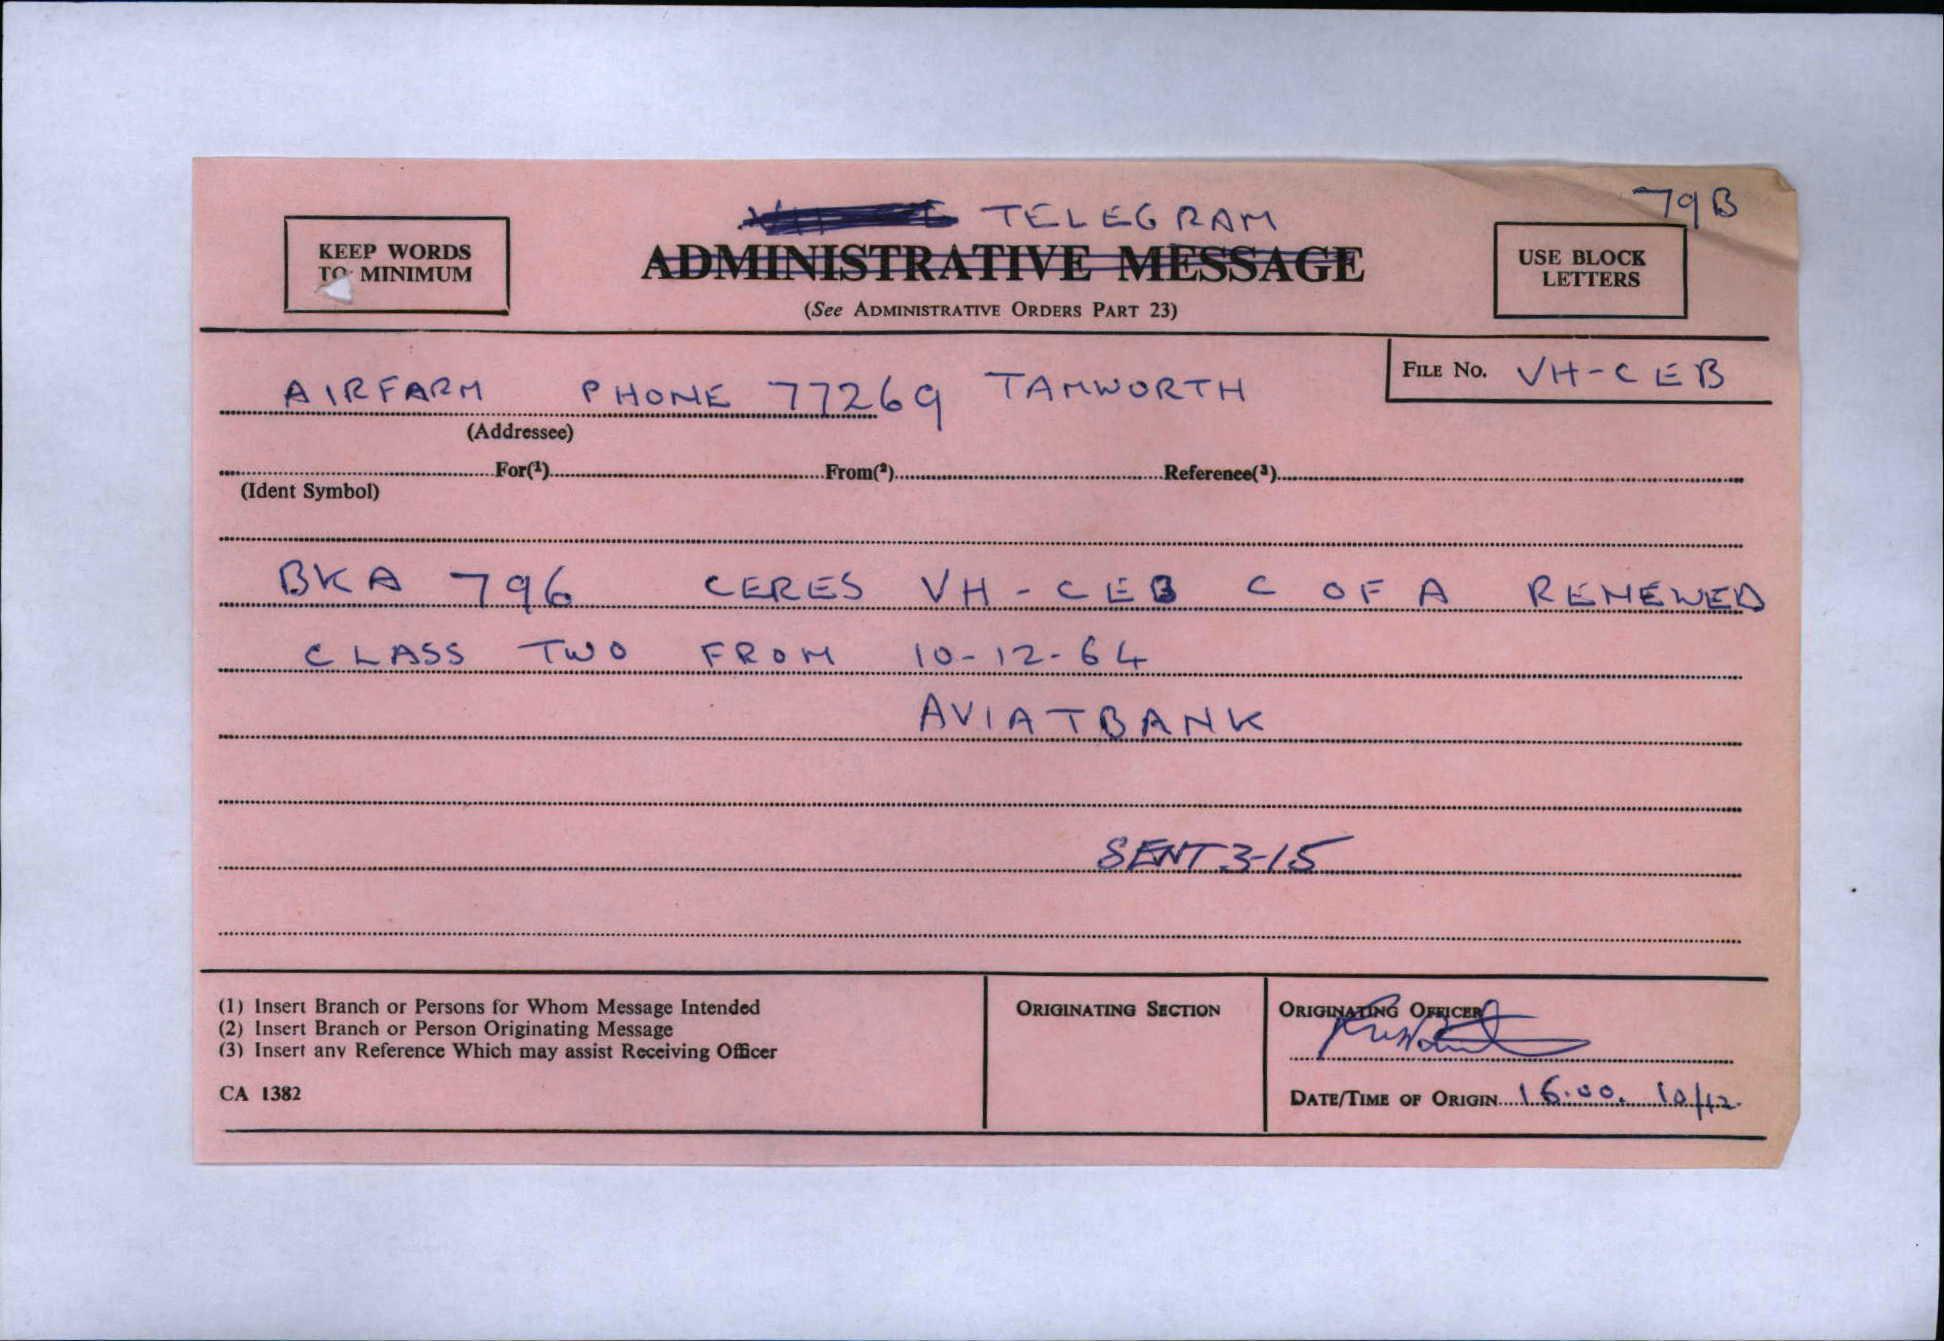 79B
TELEGRAM
KEEP WORDS
TO MINIMUM
ADMINISTRATIVE MESSAGE
(See ADMINISTRATIVE ORDERS PART 23)
USE BLOCK
LETTERS
FILE NO. VH-CEB
AIRFARM PHONE 77269 TAMWORTH
(Addressee)
For(1) From(2) Reference(3)
(Ident Symbol)
BKA 796 CERES VH-CEB C OF A RENEWED
CLASS TWO FROM 10-12-64
AVIATBANK
SENT 3-15
(1) Insert Branch or Persons for Whom Message Intended
(2) Insert Branch or Person Originating Message
(3) Insert any Reference Which may assist Receiving Officer
CA 1382
ORIGINATING SECTION
ORIGINATING OFFICER
DATE/TIME OF ORIGIN 16.00. 10/12.